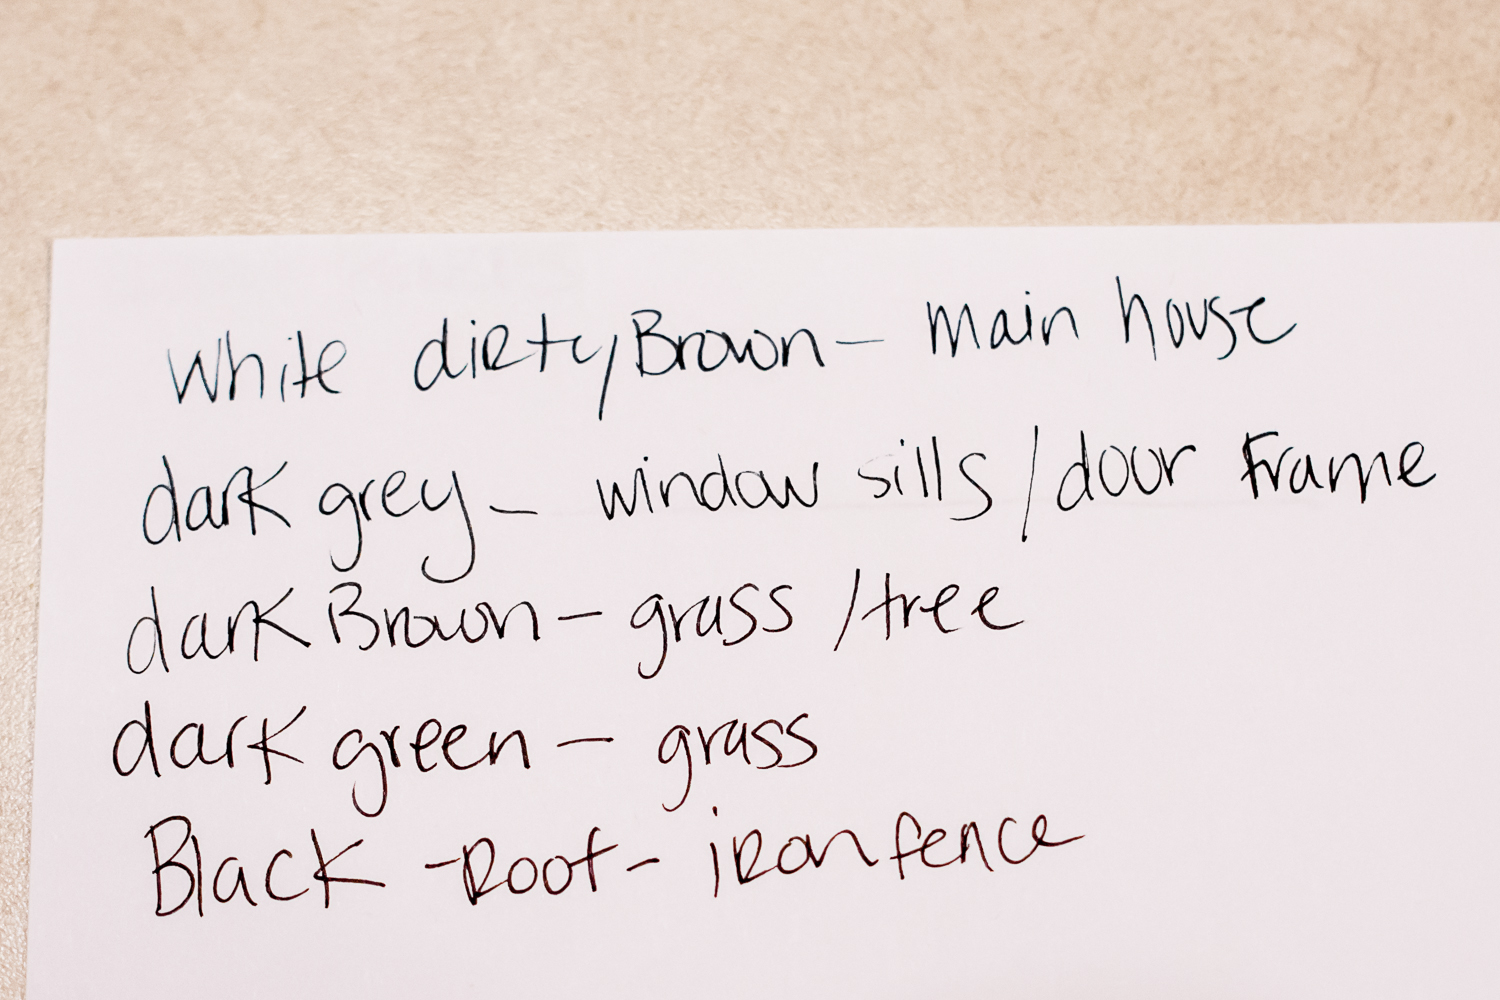 White dirty Brown - main house
dark grey - window sills / door Frame
dark Brown - grass / tree
dark green - grass
Black - Roof - iron fence